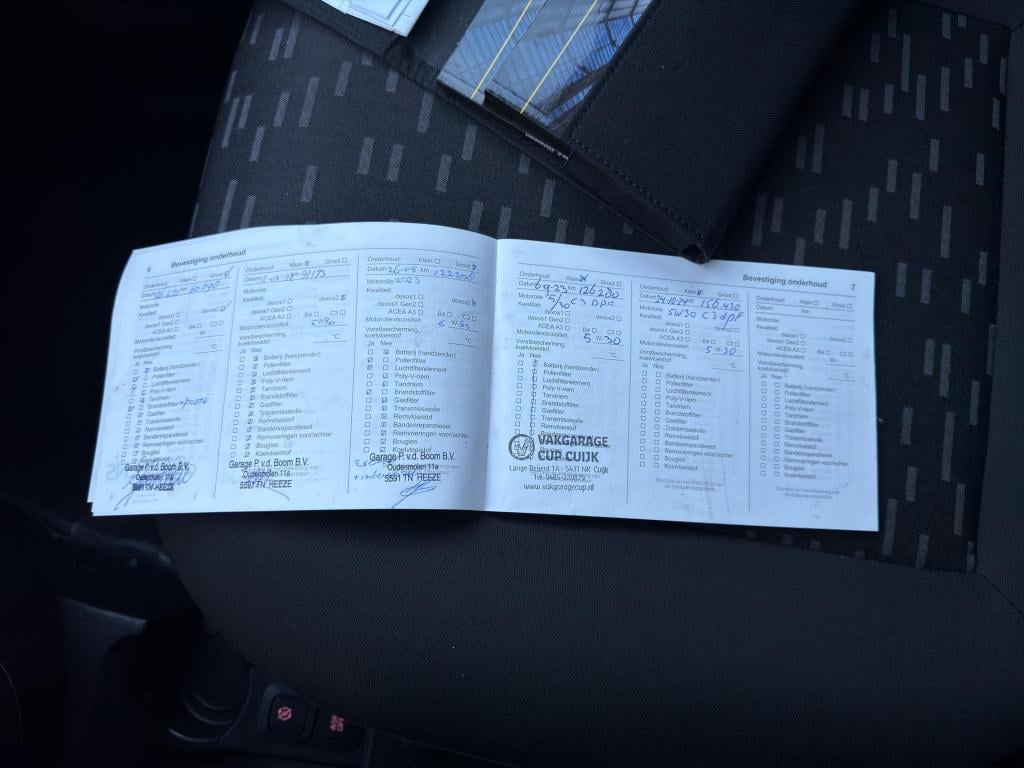 6 Bevestiging onderhoud
Onderhoud: Klein Groot
Datum km
Motorolie
Kwaliteit:
dexos1 dexos2
dexos1 Gen2
ACEA A3 B4 C3
Motorolieviscositeit: W-
Vorstbescherming °C
koelvloeistof
Ja Nee
Batterij (handzender)
Pollenfilter
Luchtfilterelement
Poly-V-riem
Tandriem
Brandstoffilter
Gasfilter
Transmissieolie
Remvloeistof
Bandenreparatieset
Remvoeringen voor/achter
Bougies
Koelvloeistof
Garage P. v.d. Boom B.V.
Oudenmolen 11a
5591 TN HEEZE
Onderhoud: Klein Groot
Datum km 91173
Motorolie
Kwaliteit:
dexos1 dexos2
dexos1 Gen2
ACEA A3 B4 C3
Motorolieviscositeit:
Vorstbescherming °C
koelvloeistof
Ja Nee
Batterij (handzender)
Pollenfilter
Luchtfilterelement
Poly-V-riem
Tandriem
Brandstoffilter
Gasfilter
Transmissieolie
Remvloeistof
Bandenreparatieset
Remvoeringen voor/achter
Bougies
Koelvloeistof
Garage P. v.d. Boom B.V.
Oudenmolen 11a
5591 TN HEEZE
Onderhoud: Klein Groot
Datum 26-05 km 122230
Motorolie 2023
Kwaliteit:
dexos1 dexos2
dexos1 Gen2
ACEA A3 B4 C3
Motorolieviscositeit: 5 W-30
Vorstbescherming °C
koelvloeistof
Ja Nee
Batterij (handzender)
Pollenfilter
Luchtfilterelement
Poly-V-riem
Tandriem
Brandstoffilter
Gasfilter
Transmissieolie
Remvloeistof
Bandenreparatieset
Remvoeringen voor/achter
Bougies
Koelvloeistof
Garage P. v.d. Boom B.V.
Oudenmolen 11a
5591 TN HEEZE
Bevestiging onderhoud 7
Onderhoud: Klein Groot
Datum km 126200
Motorolie 5/30 C3 DPF
Kwaliteit:
dexos1 dexos2
dexos1 Gen2
ACEA A3 B4 C3
Motorolieviscositeit: 5 W-30
Vorstbescherming °C
koelvloeistof
Ja Nee
Batterij (handzender)
Pollenfilter
Luchtfilterelement
Poly-V-riem
Tandriem
Brandstoffilter
Gasfilter
Transmissieolie
Remvloeistof
Bandenreparatieset
VAKGARAGE
CUP CUIJK
Lange Beijerd 1A - 5431 NR Cuijk
Tel. 0485-320879
www.vakgaragecup.nl
Onderhoud: Klein Groot
Datum 24-10-24 km 150.430
Motorolie 5W30 C3 dpf
Kwaliteit:
dexos1 dexos2
dexos1 Gen2
ACEA A3 B4 C3
Motorolieviscositeit: 5 W-30
Vorstbescherming °C
koelvloeistof
Ja Nee
Batterij (handzender)
Pollenfilter
Luchtfilterelement
Poly-V-riem
Tandriem
Brandstoffilter
Gasfilter
Transmissieolie
Remvloeistof
Bandenreparatieset
Remvoeringen voor/achter
Bougies
Koelvloeistof
Onderhoud: Klein Groot
Datum km
Motorolie
Kwaliteit:
dexos1 dexos2
dexos1 Gen2
ACEA A3 B4 C3
Motorolieviscositeit: W-
Vorstbescherming °C
koelvloeistof
Ja Nee
Batterij (handzender)
Pollenfilter
Luchtfilterelement
Poly-V-riem
Tandriem
Brandstoffilter
Gasfilter
Transmissieolie
Remvloeistof
Bandenreparatieset
Remvoeringen voor/achter
Bougies
Koelvloeistof
OFF